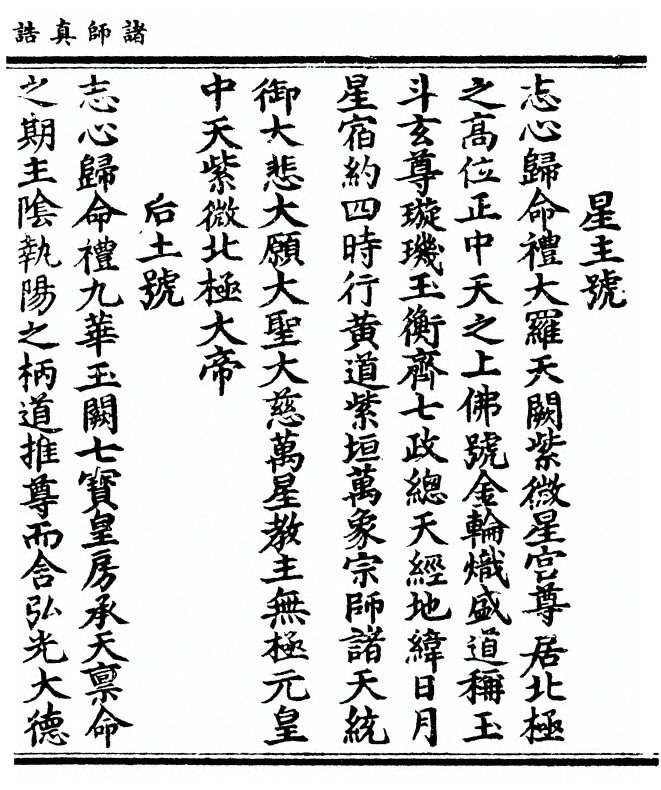 諸師真誥
星主號
志心歸命禮大羅天闕紫微星宮尊居北極
之高位正中天之上佛號金輪熾盛道稱玉
斗玄尊璇璣玉衡齊七政總天經地緯日月
星宿約四時行黃道紫垣萬象宗師諸天統
御大悲大願大聖大慈萬星教主無極元皇
中天紫微北極大帝
后土號
志心歸命禮九華玉闕七寶皇房承天禀命
之期主陰執陽之柄道推尊而含弘光大德